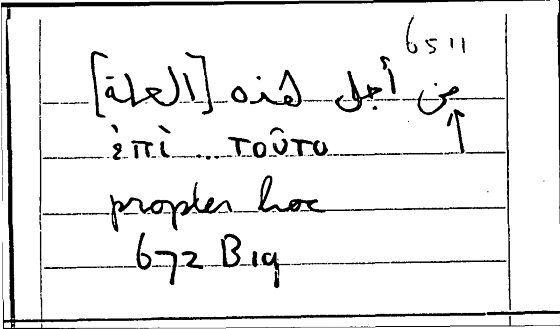 6511
من أجل هذه [العلة]
ἐπὶ ... τοῦτο
propter hoc
672 B19